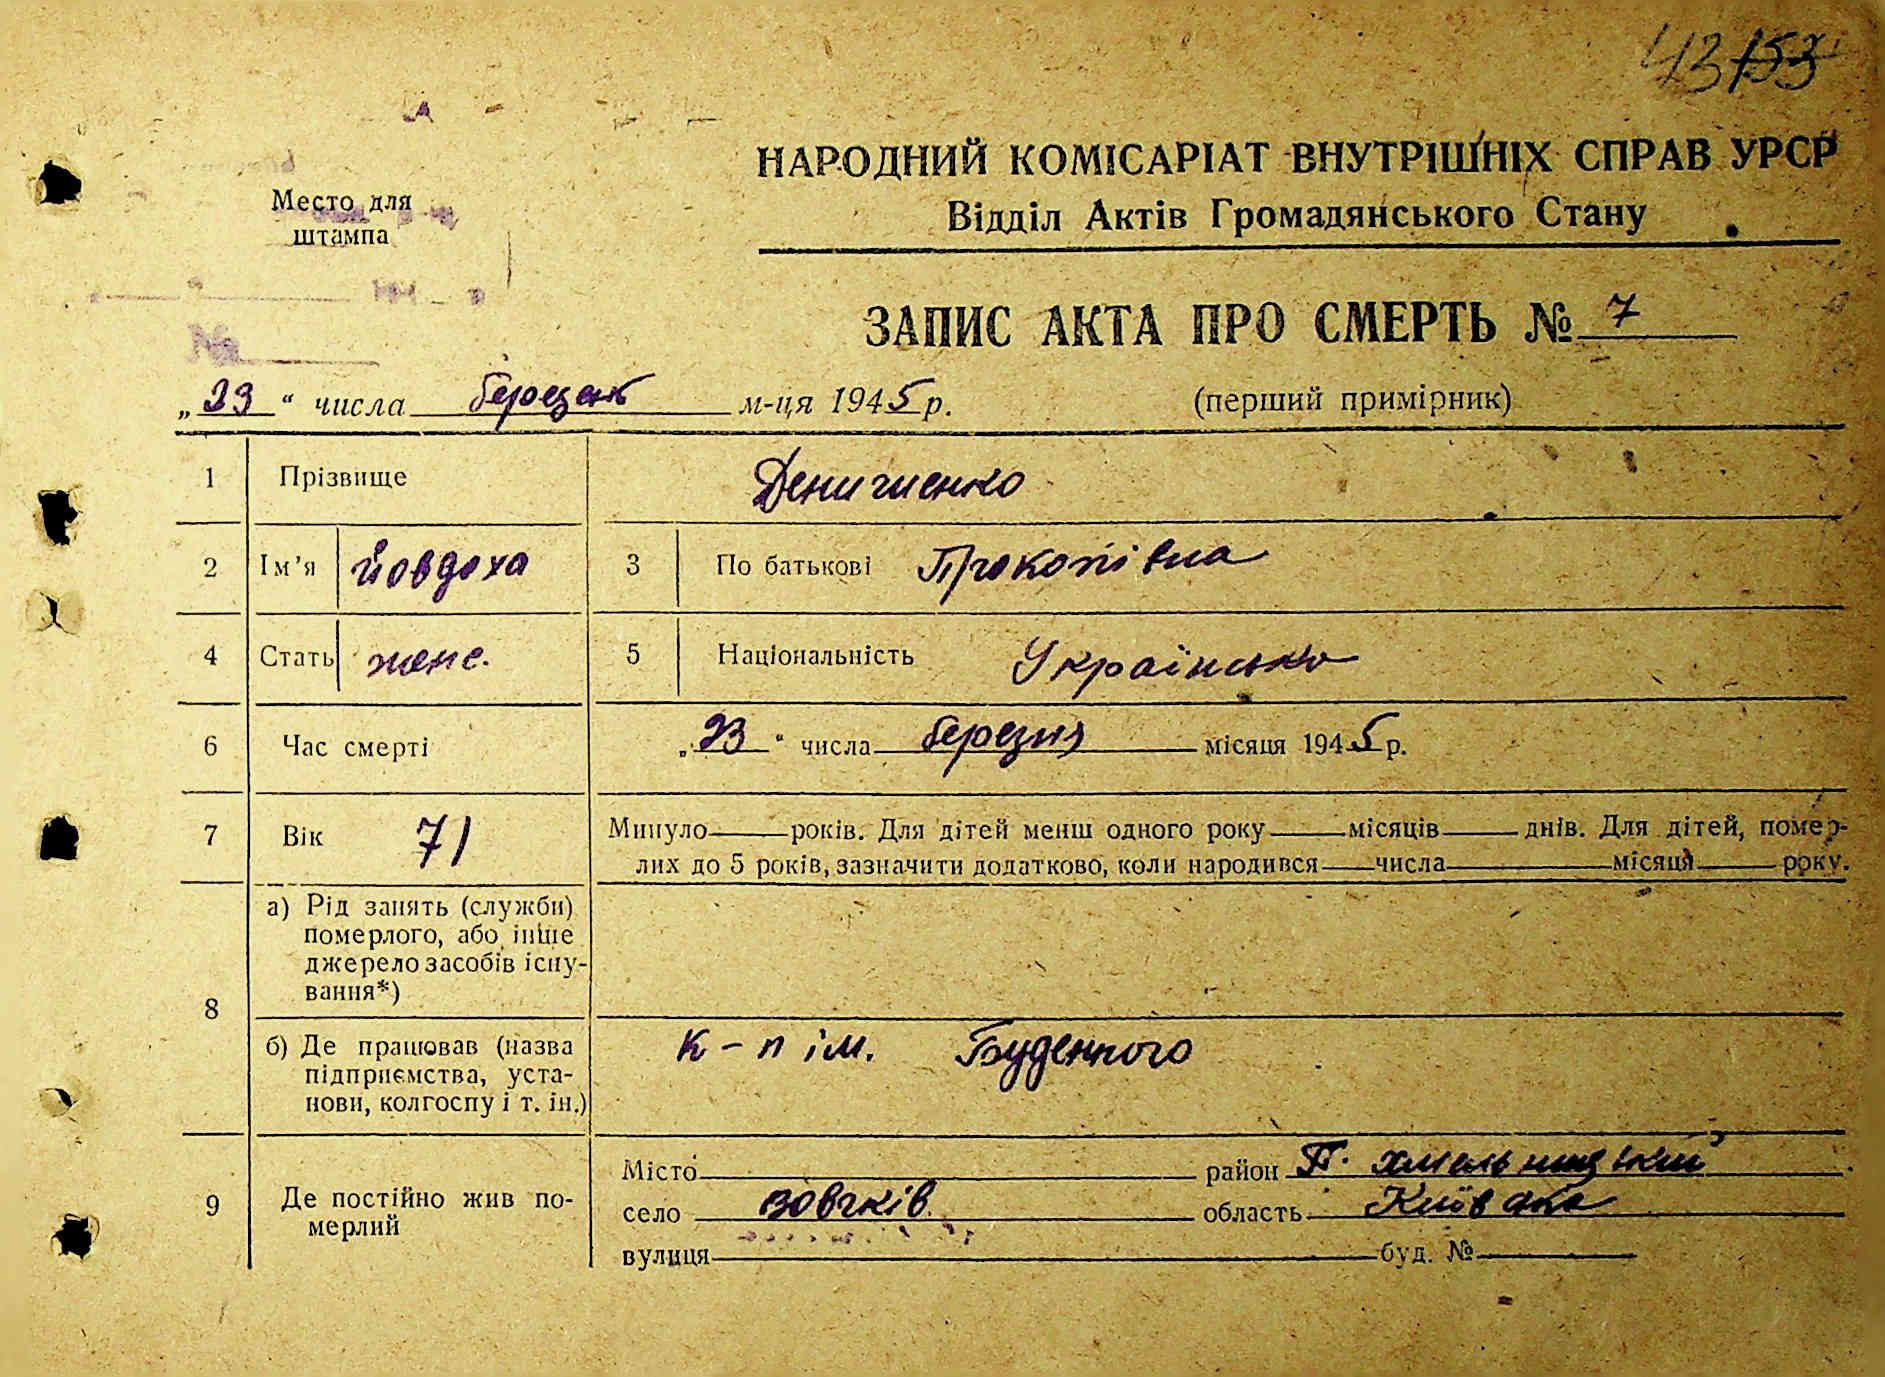 43 153
НАРОДНИЙ КОМІСАРІАТ ВНУТРІШНІХ СПРАВ УРСР
Відділ Актів Громадянського Стану
Место для
штампа
№
ЗАПИС АКТА ПРО СМЕРТЬ № 7
„23“ числа березень м-ця 1945 р. (перший примірник)
1 Прізвище Денишенко
2 Ім’я Йовдоха 3 По батькові Прокопівна
4 Стать женс. 5 Національність Українська
6 Час смерті „23“ числа березня місяця 1945 р.
7 Вік 71 Минуло років. Для дітей менш одного року місяців днів. Для дітей, помер-
лих до 5 років, зазначити додатково, коли народився числа місяця року.
8 а) Рід занять (служби)
померлого, або інше
джерело засобів існу-
вання*)
б) Де працював (назва
підприємства, уста-
нови, колгоспу і т. ін.)
к-п ім. Буденного
9 Де постійно жив по-
мерлий
Місто район П. Хмельницький
село Вовчків область Київська
вулиця буд. №